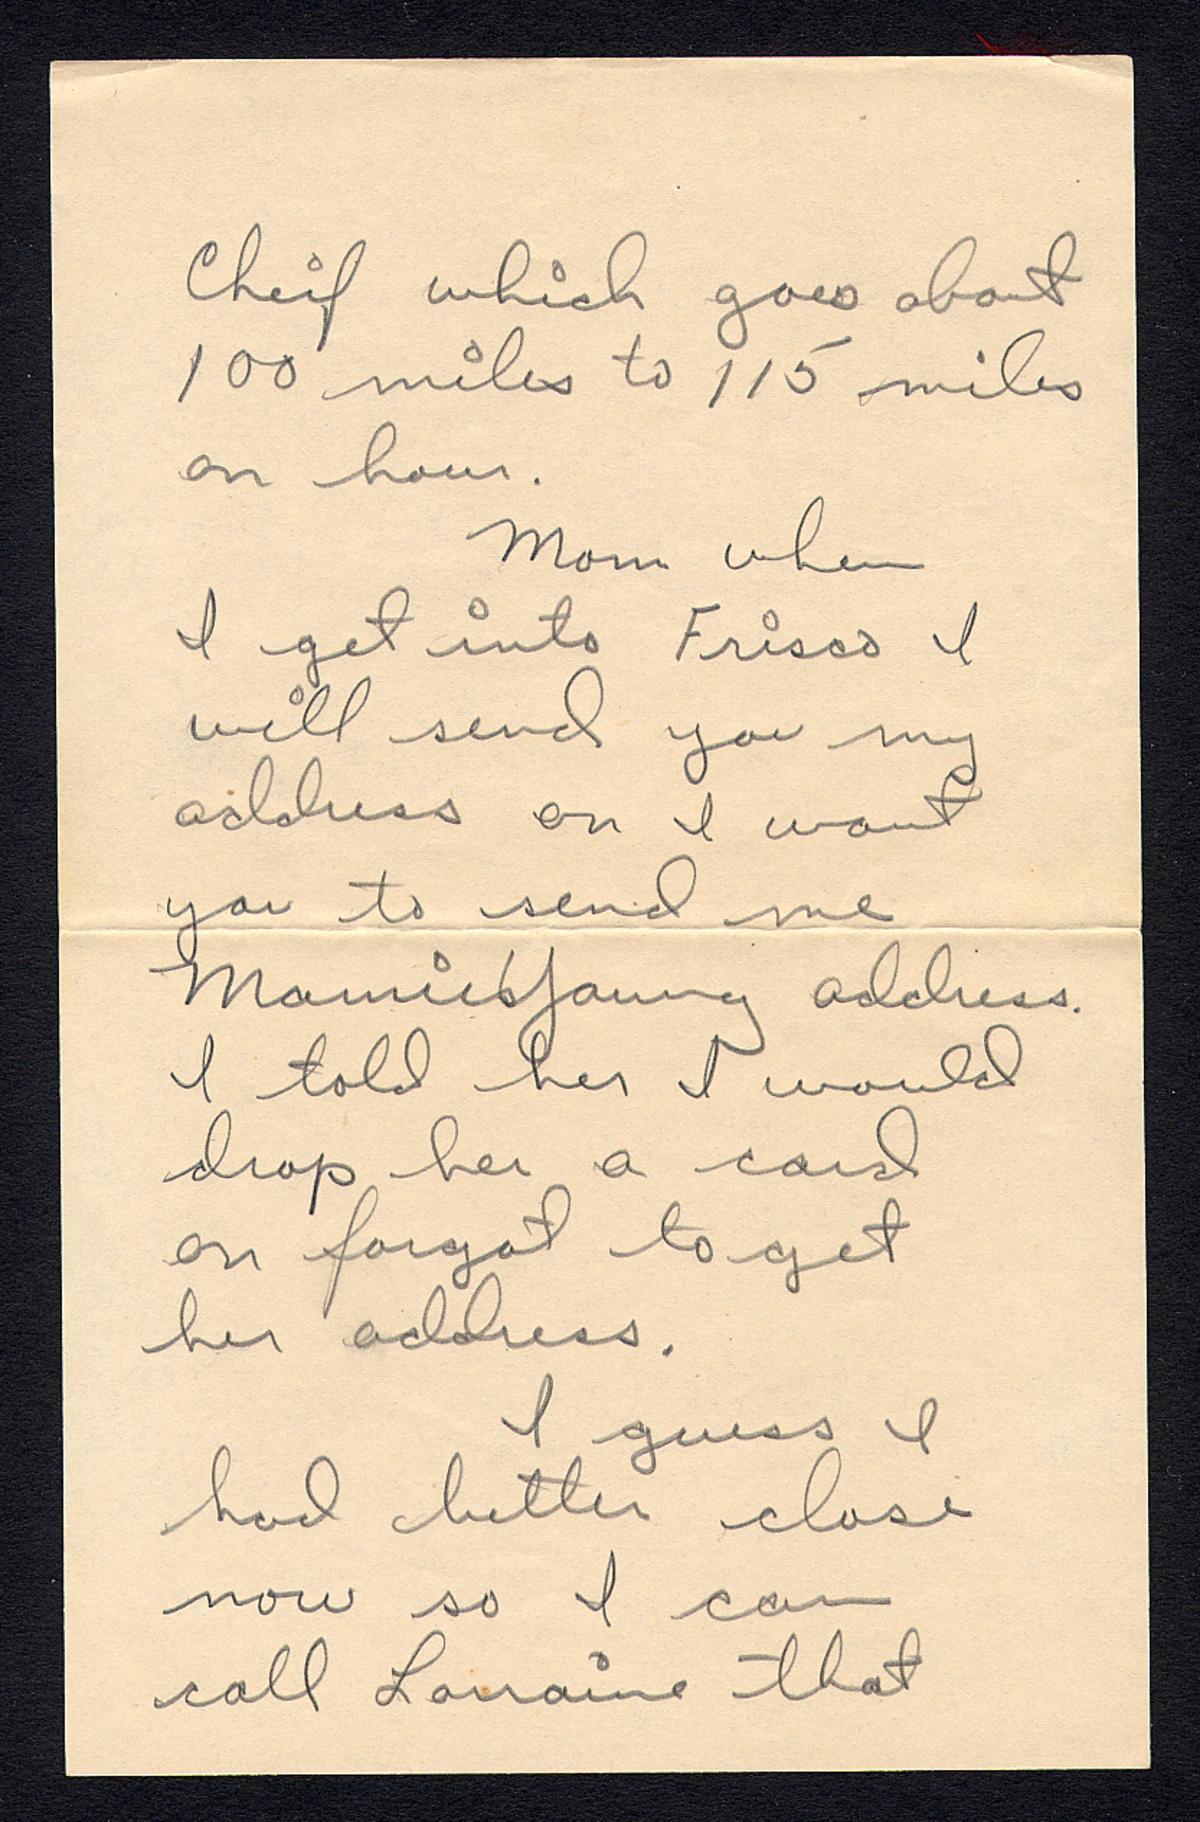 Cheif which goes about
100 miles to 115 miles
an hour.
Mom when
I get into Frisco I
will send you my
address an I want
you to send me
Mamie Young address.
I told her I would
drop her a card
an forgot to get
her address.
I guess I
had better close
now so I can
call Lorraine that